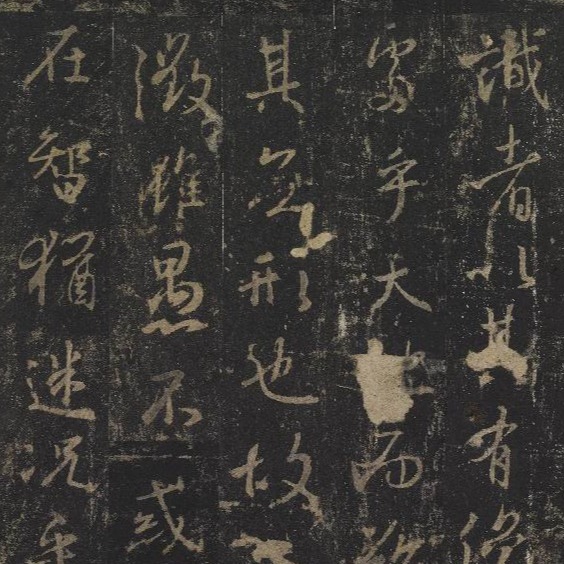 識者以其有像
處乎天而難
其無形也故
徵雖愚不惑
在智猶迷況乎